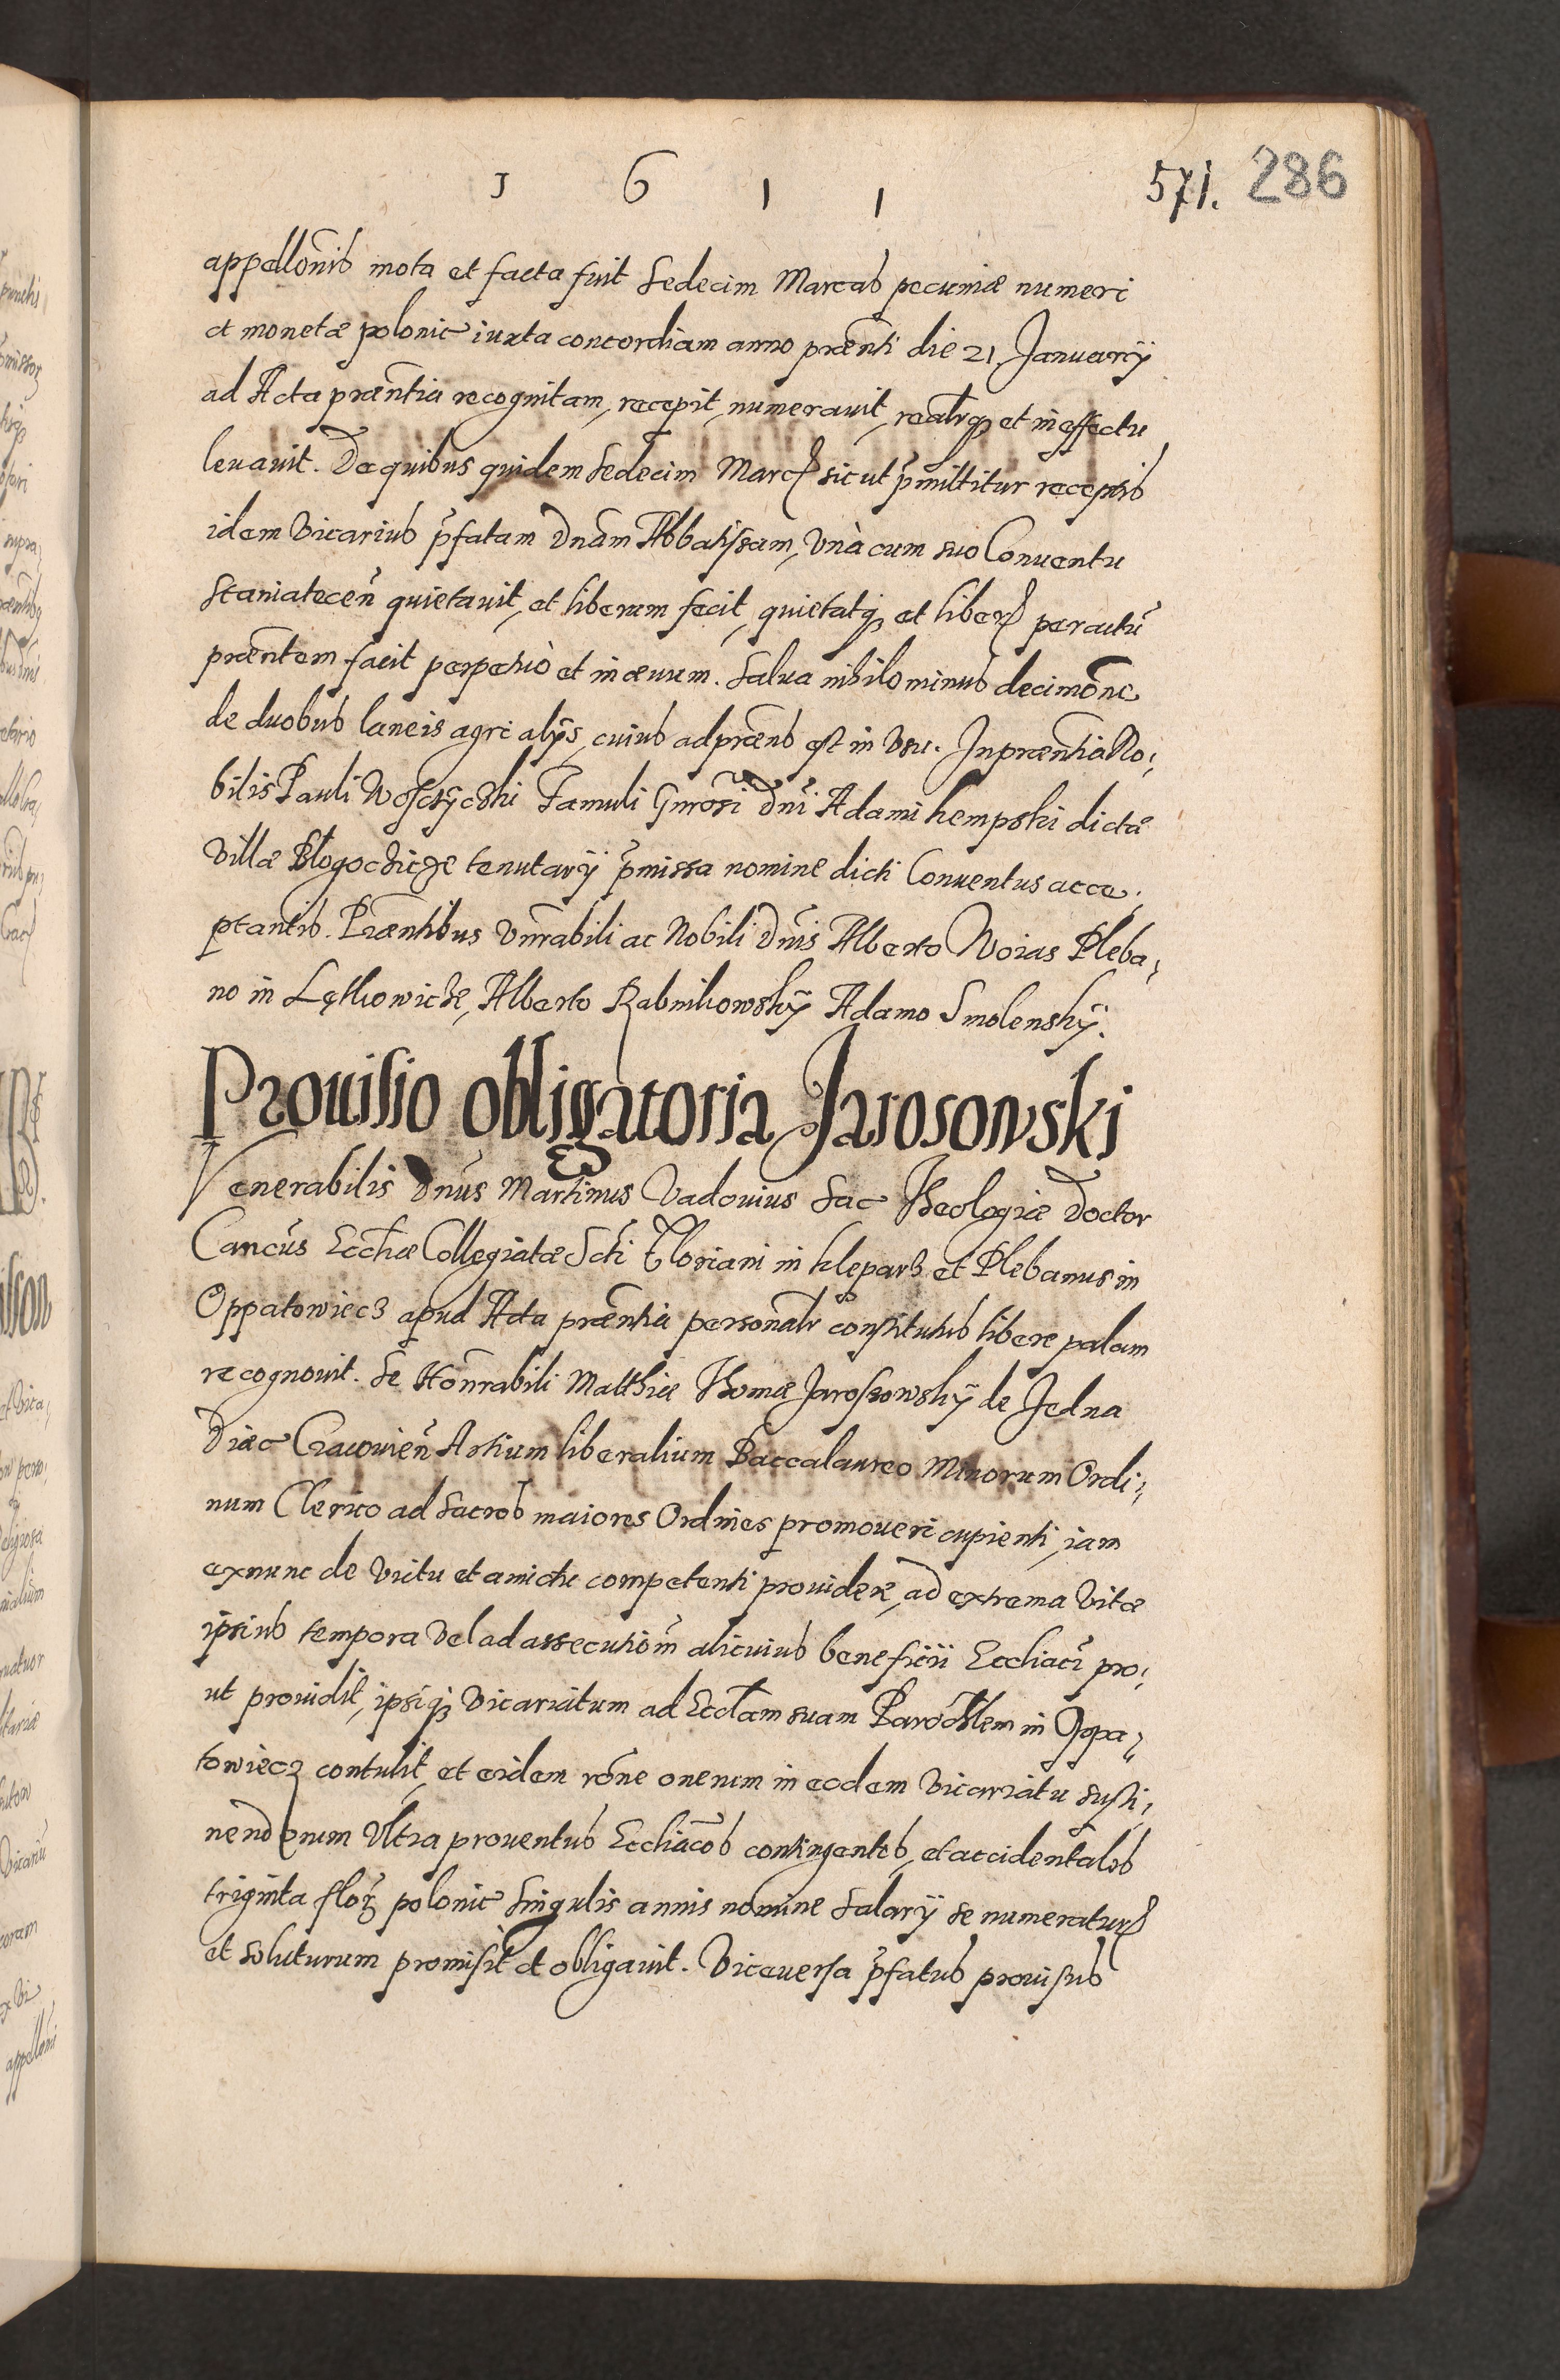 1 6 1 1
571. 286
appellonis mota et facta fuit Sedecim Marcas pecuniæ numeri
et monetæ polonic iuxta concordiam anno præñti die 21 Januarÿ
ad Acta præntia recognitam, recepit, numerauit, realrq3 et in effectu
leuauit. De quibus quidem Sedecim Marc sicut p̃mittitur receptis
idem Vicarius p̃fatam Dnãm Abbatissam, Vnà cum suo Conuentu
Staniatecen̄ quietauit, et liberum fecit, quietatq3 et liber per actũ
præntem facit perpetuò et in æuum. Salua nihilominus decimõne
de duobus laneis agri alÿs, cuius ad præns est in Vsu. In præntia No¡
bilis Pauli Wosczÿczki Famuli Gnrosi Dnĩ Adami Kempski dictæ
Villæ Blogoczicze tenutarÿ p̃missa nomine dicti Conuentus acce¡
ptantis. Præntibus Vnrabili ac Nobili Dnĩs Alberto Woias Pleba¡
no in Lętkowicze, Alberto Rabnikowskÿ Adamo Smolenskÿ.
Prouisio obligatoria Jarosowski
Venerabilis Dnũs Martinus Vadouius Sac Theologiæ Doctor
Cancũs Ecclhæ Collegiatæ Scti Floriani in Klepar3 et Plebanus in
Oppatowiec3 apud Acta præntia personalr constitutus libere palam
recognouit. Se Honrabili Matthiæ Thomæ Jaroszowskÿ de Jedna
Diæc Cracouien̄ Artium liberalium Baccalaureo Minorum Ordi¡
num Clerico ad Sacros maiores Ordines promoueri cupienti, iam
exnunc de Victu et amictu competenti prouidere, ad extrema Vitæ
ipsius tempora Vel ad assecutiom̃ alicuius beneficii Eccliaci pro¡
ut prouidit, ipsiq3 Vicariatum ad Ecclam suam Parochlem in Oppa¡
towiecz contulit, et eidem rõne onerum in eodem Vicariatu susti¡
nendorum Vltra prouentus Eccliacos contingentes, et accidentales
triginta flor polonic Singulis annis nomine Salarÿ se numeratur
et soluturum promisit et obligauit. Viceuersa p̃fatus prouisus